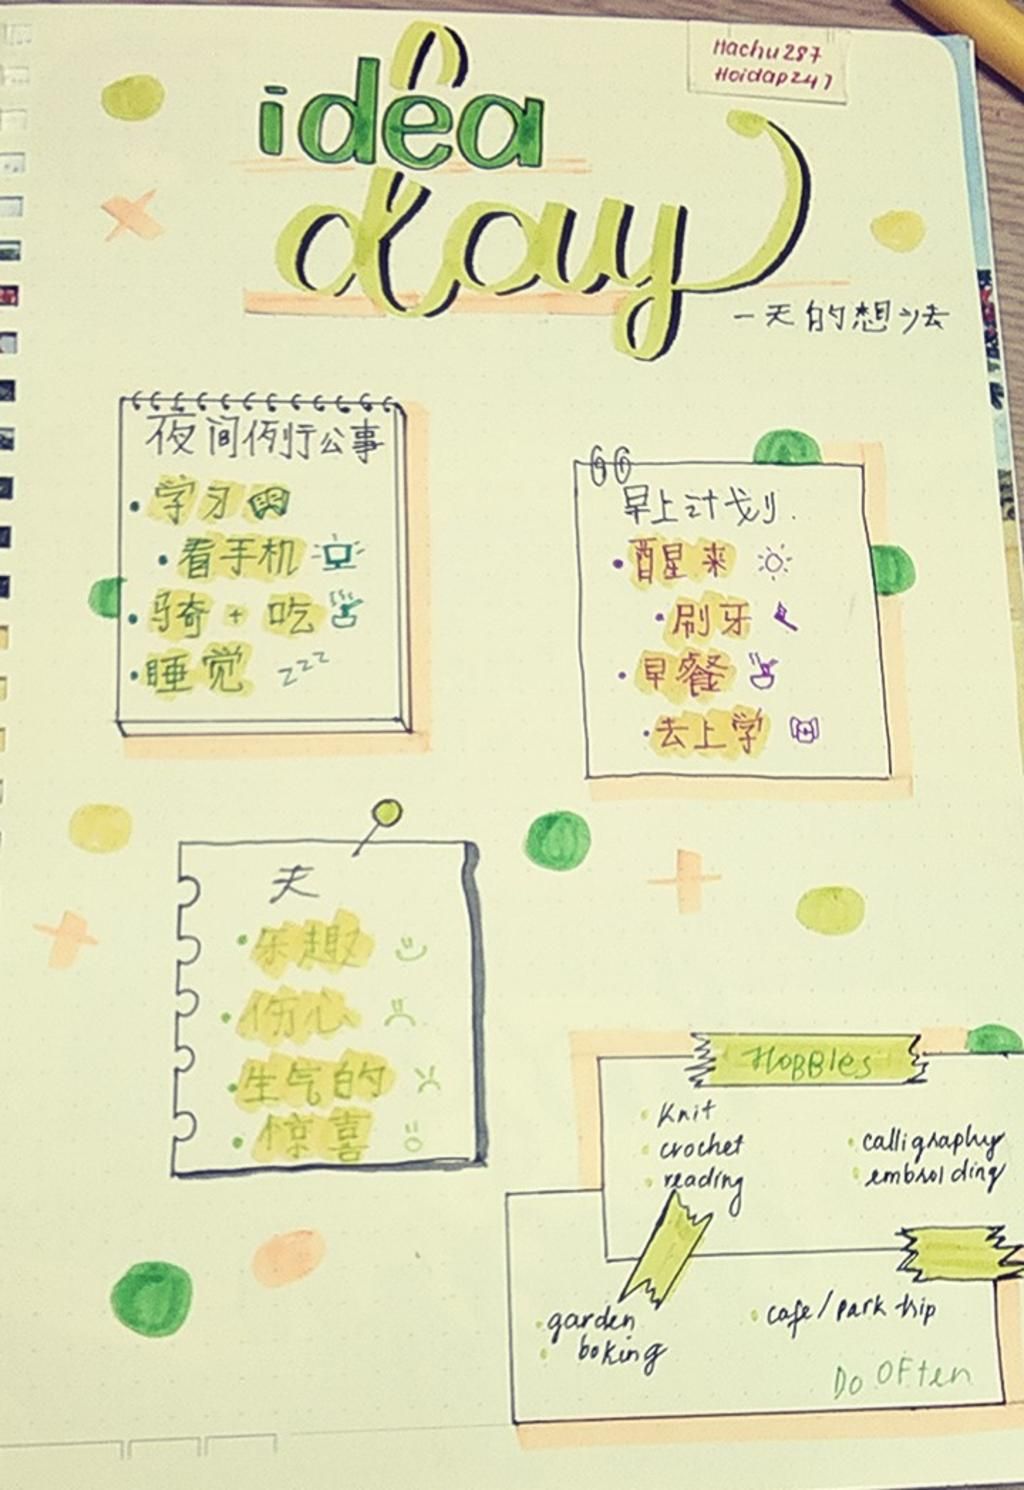 Hachu287
Hoidap247
idea
day
一天的想法
夜间例行公事
学习
看手机
骑 + 吃
睡觉 zzz
早上计划.
醒来
刷牙
早餐
去上学
天
乐趣
伤心
生气的
惊喜
HoBBles
Knit
crochet
reading
calligraphy
embroiding
garden
boking
cafe/park trip
Do OFten